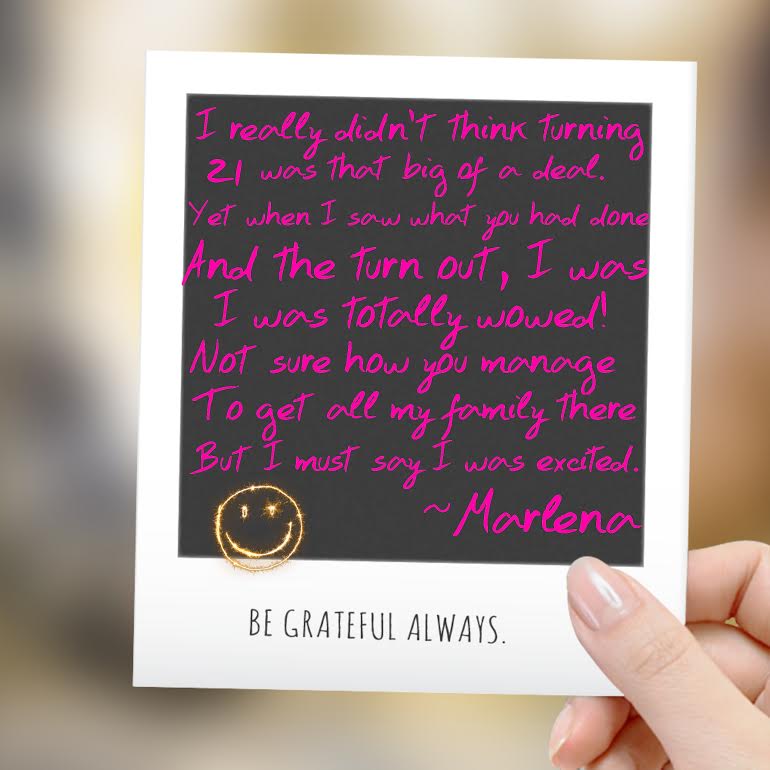 I really didn't think turning
21 was that big of a deal.
Yet when I saw what you had done
And the turn out, I was
I was totally wowed!
Not sure how you manage
To get all my family there
But I must say I was excited.
~Marlena
BE GRATEFUL ALWAYS.